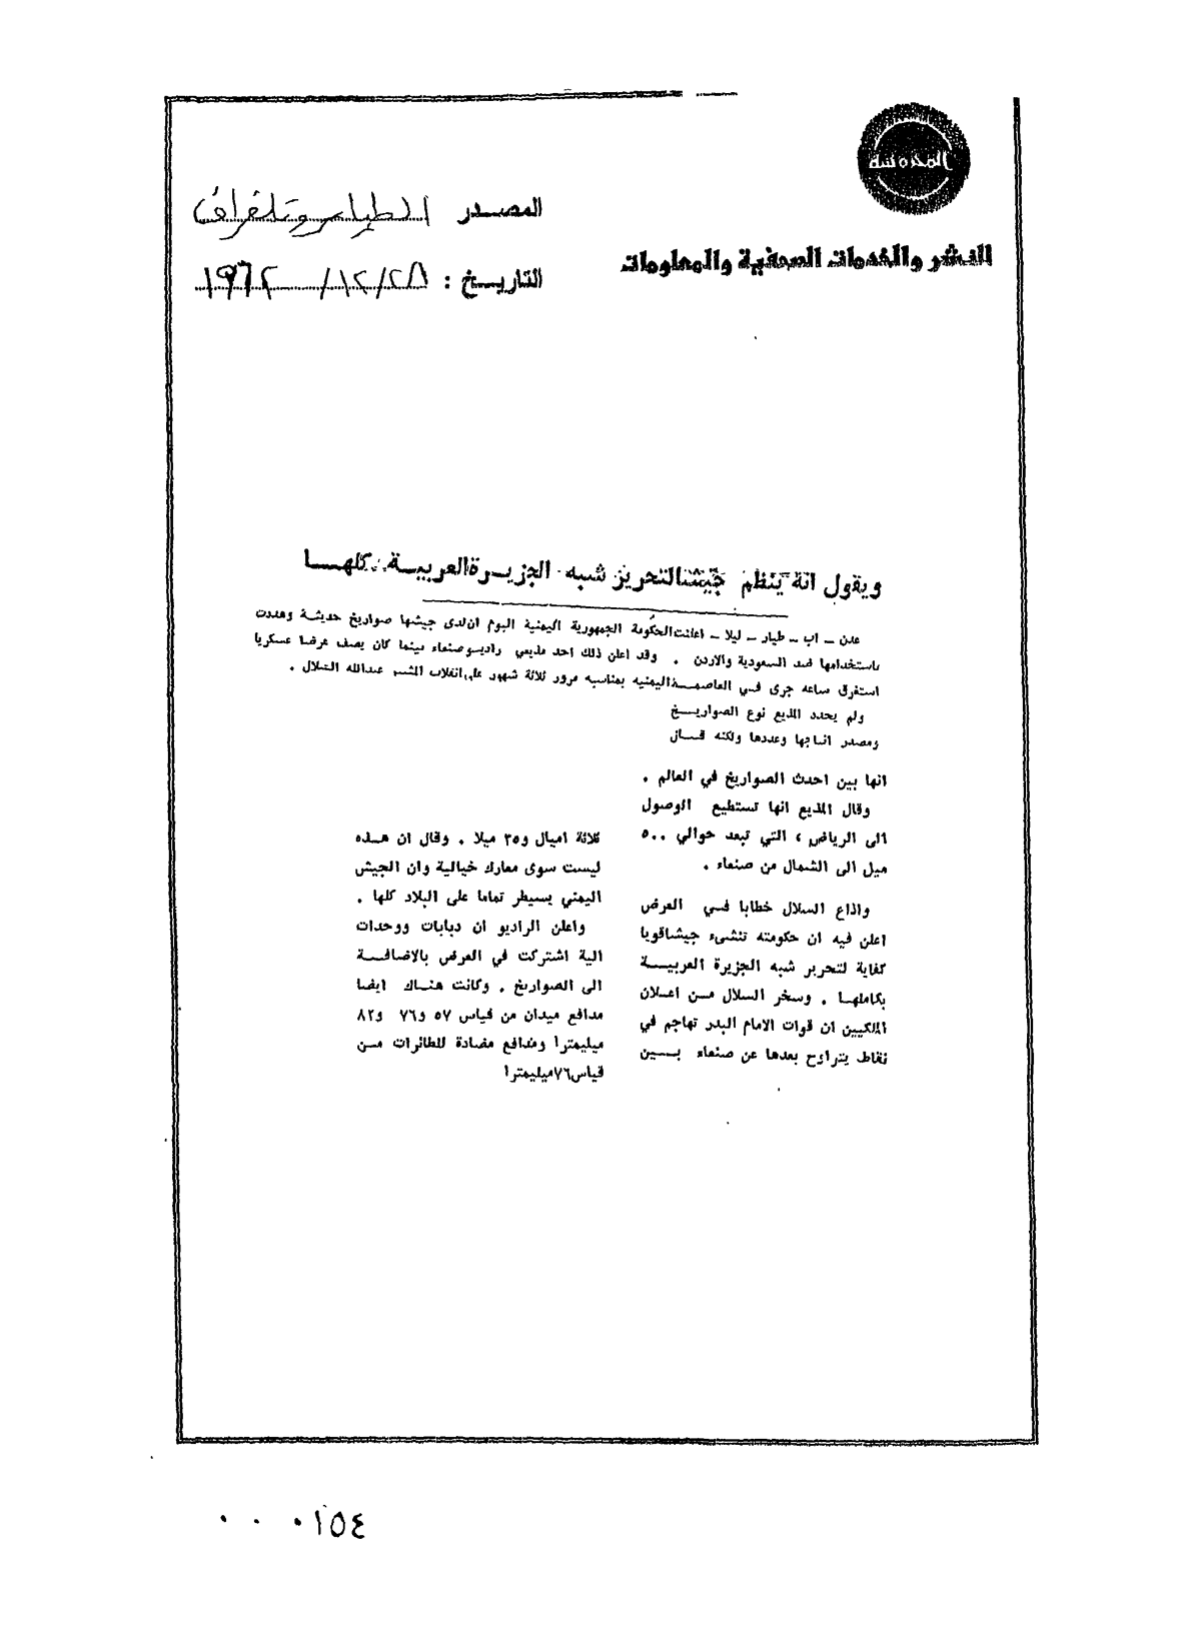 المحروسة
للنشر والخدمات الصحفية والمعلومات
المصدر الطيار وتلغراف
التاريخ : ٢٨/١٢/١٩٦٢
ويقول انه ينظم جيشا لتحرير شبه الجزيرة العربية كلها
عدن – اب – طيار – ليلا – اعلنت الحكومة الجمهورية اليمنية اليوم ان لدى جيشها صواريخ حديثة وهددت
باستخدامها ضد السعودية والاردن . وقد اعلن ذلك احد مذيعي راديو صنعاء بينما كان يصف عرضا عسكريا
استغرق ساعه جرى في العاصمة اليمنيه بمناسبه مرور ثلاثة شهور على انقلاب المشير عبدالله السلال .
ولم يحدد المذيع نوع الصواريخ
ومصدر انتاجها وعددها ولكنه قال
انها بين احدث الصواريخ في العالم .
وقال المذيع انها تستطيع الوصول
الى الرياض ، التي تبعد حوالي ٥٠٠
ميل الى الشمال من صنعاء .
واذاع السلال خطابا في العرض
اعلن فيه ان حكومته تنشىء جيشا قويا
كفاية لتحرير شبه الجزيرة العربية
بكاملها . وسخر السلال من اعلان
الملكيين ان قوات الامام البدر تهاجم في
نقاط يتراوح بعدها عن صنعاء بين
ثلاثة اميال و٢٥ ميلا . وقال ان هذه
ليست سوى معارك خيالية وان الجيش
اليمني يسيطر تماما على البلاد كلها .
واعلن الراديو ان دبابات ووحدات
الية اشتركت في العرض بالاضافة
الى الصواريخ . وكانت هناك ايضا
مدافع ميدان من قياس ٥٧ و٧٦ و٨٢
ميليمترا ومدافع مضادة للطائرات من
قياس ٧٦ ميليمترا
٠ ٠ ٠١٥٤